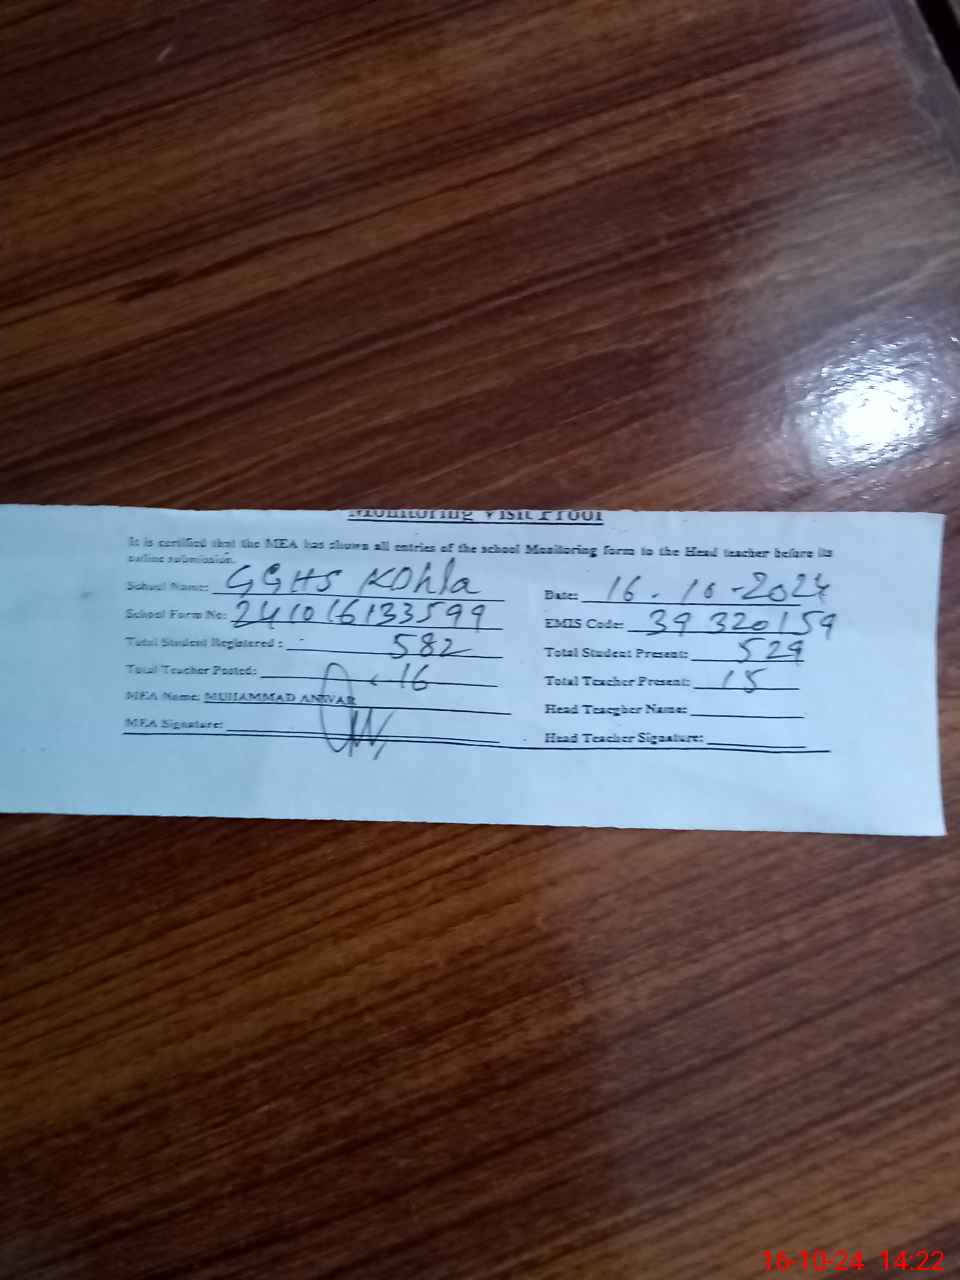 Monitoring Visit Proof
It is certified that the MEA has shown all entries of the school Monitoring form to the Head teacher before its
online submission.
School Name: GGHS Kohla Date: 16-10-2024
School Form No: 241016133599 EMIS Code: 39320159
Total Student Registered : 582 Total Student Present: 529
Total Teacher Posted: 16 Total Teacher Present: 15
MEA Name: MUHAMMAD ANWAR Head Teacgher Name:
MEA Signature: Head Teacher Signature:
16-10-24 14:22